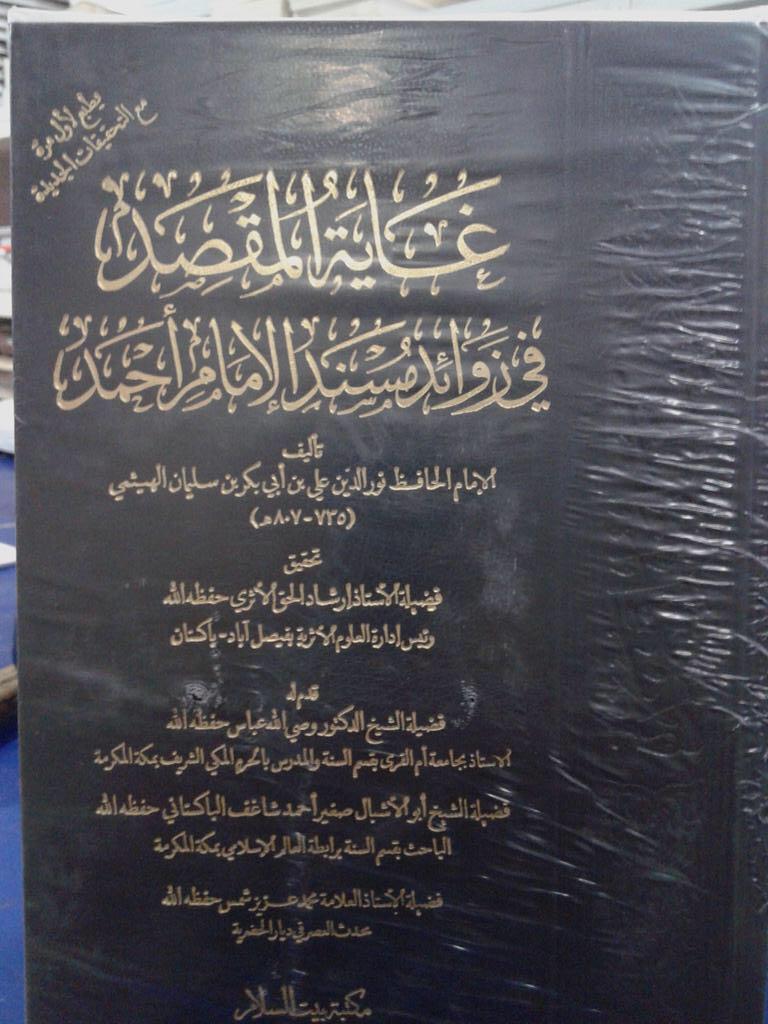 يطبع لأول مرة
مع التحقيقات الجديدة
غاية المقصد
في زوائد مسند الإمام أحمد
تأليف
الإمام الحافظ نور الدين علي بن أبي بكر بن سليمان الهيثمي
(٧٣٥-٨٠٧هـ)
تحقيق
فضيلة الأستاذ إرشاد الحق الأثري حفظه الله
رئيس إدارة العلوم الأثرية بفيصل آباد - باكستان
قدم له
فضيلة الشيخ الدكتور وصي الله عباس حفظه الله
الاستاذ بجامعة أم القرى بقسم السنة والمدرس بالحرم المكي الشريف بمكة المكرمة
فضيلة الشيخ أبو الأشبال صغير أحمد شاغف الباكستاني حفظه الله
الباحث بقسم السنة برابطة العالم الإسلامي بمكة المكرمة
فضيلة الأستاذ العلامة محمد عزيز شمس حفظه الله
محدث العصر في ديار الحضرية
مكتبة بيت السلام